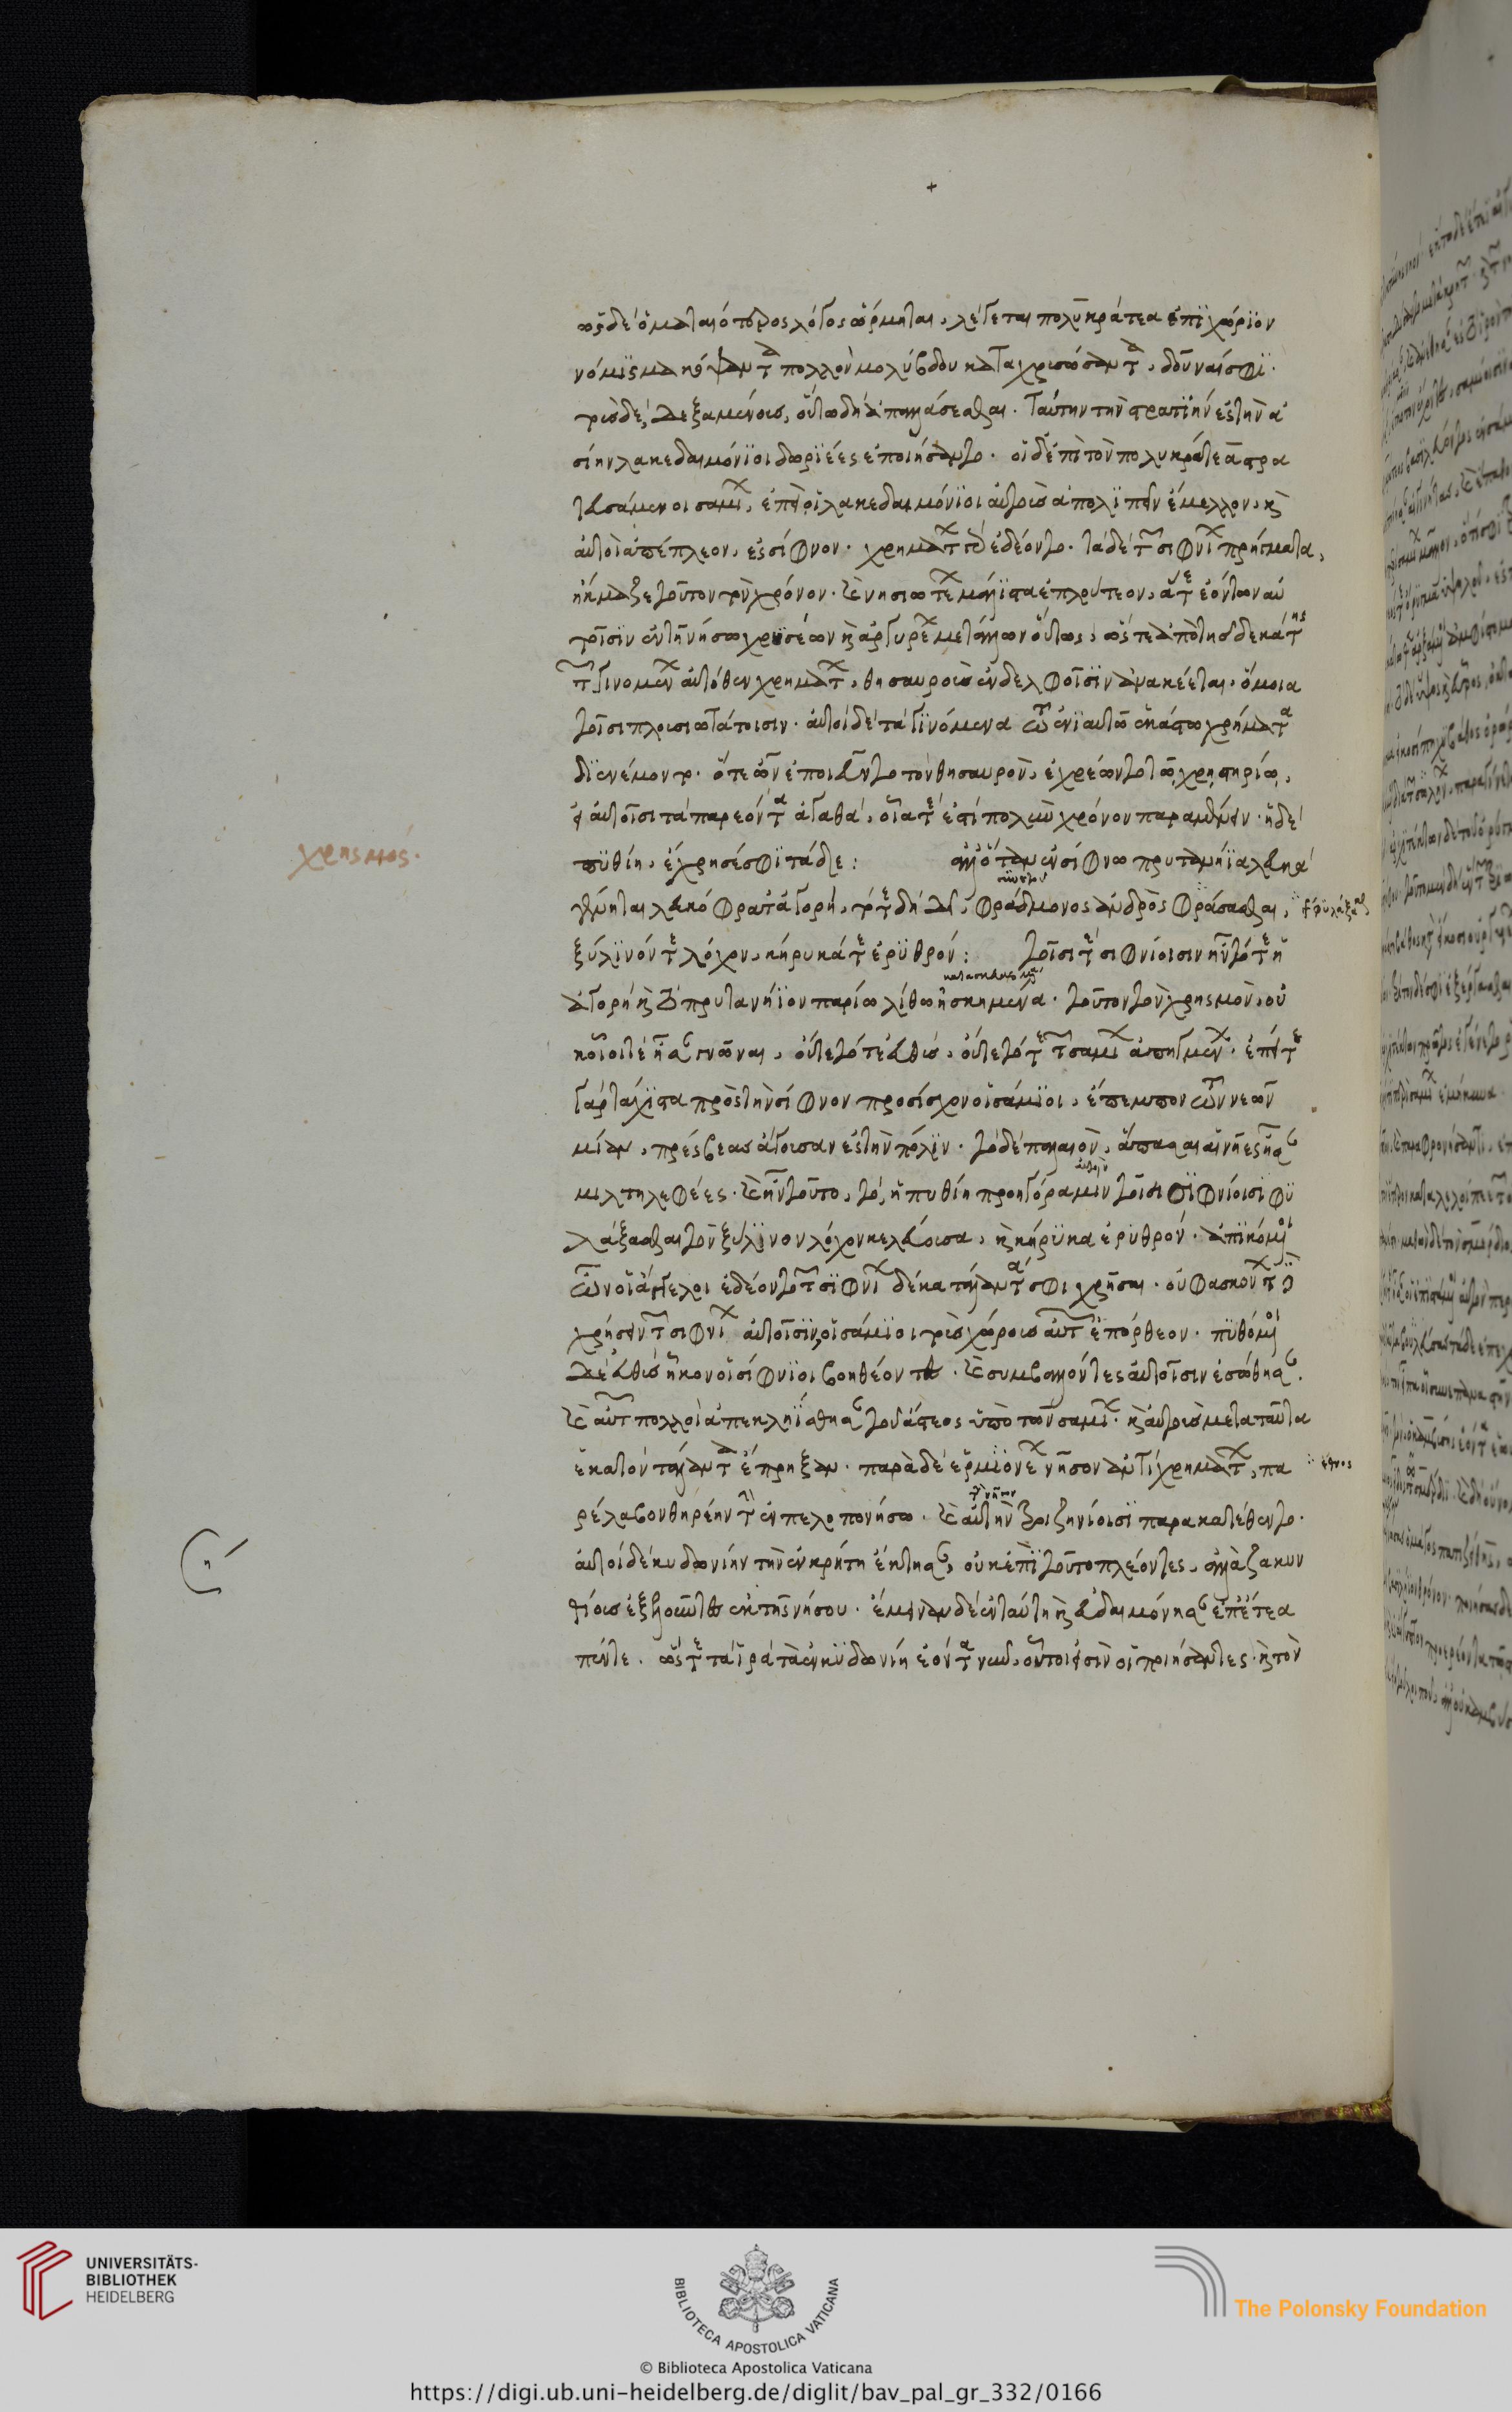 +
ὡς δὲ ὁ ματαιότερος λόγος ὥρμηται, λέγεται πολυκράτεα ἐπιχώριον
νόμισμα κόψαντα πολλὸν μολύβδου καταχρυσώσαντα, δοῦναί σφι·
τοὺς δὲ δεξαμένους, οὕτω δὴ ἀπαλλάσσεσθαι. ταύτην στρατιὴν ἐς τὴν ἀ
σίην λακεδαιμόνιοι δωριέες ἐποιήσαντο. οἱ δὲ ἐπὶ τὸν πολυκράτεα στρα
τευσάμενοι σαμίων, ἐπεὶ οἱ λακεδαιμόνιοι αὐτοὺς ἀπολιπεῖν ἔμελλον, καὶ
αὐτοὶ ἀπέπλεον, ἐς σίφνον. χρημάτων γὰρ ἐδέοντο. τὰ δὲ τῶν σιφνίων πρήγματα,
ἤκμαζε τοῦτον τὸν χρόνον. καὶ νησιωτέων μάλιστα ἐπλούτεον, ἅτε ἐόντων αὐ
τοῖσιν ἐν τῆ νήσω χρυσέων καὶ ἀργυρέων μετάλλων οὕτως, ὥστε ἀπὸ τῆς δεκάτης
τῶν γινομένων αὐτόθεν χρημάτων, θησαυρὸς ἐν δελφοῖσιν ἀνακέεται. ὅμοια
τοῖσι πλουσιωτάτοισιν. αὐτοὶ δὲ τὰ γινόμενα τῶ ἐνιαυτῶ ἑκάστω χρήματα
διενέμοντο. ὅτε ὦν ἐποιεῦντο τὸν θησαυρὸν, ἐχρέωντο τῶ χρηστηρίω,
εἰ αὐτοῖσι τὰ παρεόντα ἀγαθά, οἷά τε ἐστὶ πολλὸν χρόνον παραμένειν. ἡ δὲ
πυθίη, ἔχρησέ σφι τάδε: ἀλλ' ὅταν ἐν σίφνω πρυτανήια λευκὰ
χρησμός.
γένηται λεύκοφρύς τ' ἀγορή, τότε δὴ δεῖ, φράδμονος ἀνδρὸς φράσασθαι,
ξύλινόν τε λόχον, κήρυκά τε ἐρυθρόν: τοῖσι δὲ σιφνίοισιν ἦν τότε ἡ
ἀγορὴ καὶ τὸ πρυτανήιον παρίω λίθω ἠσκημένα. τοῦτον τὸν χρησμὸν, οὐ
κ οἷοί τε ἦσαν γνῶναι, οὔτε τότε εὐθὺς, οὔτε τότε τῶν σαμίων ἀπιγμένων. ἐπεί τε
γὰρ τάχιστα πρὸς τὴν σίφνον προσίσχον οἱ σάμιοι, ἔπεμπον τῶν νεῶν
μίαν, πρέσβεας ἄγουσαν ἐς τὴν πόλιν. τὸ δὲ παλαιὸν, ἅπασαι αἱ νῆες ἦσαν
μιλτηλεφέες. καὶ ἦν τοῦτο, τὸ, ἡ πυθίη προηγόρευε τοῖσι σιφνίοισι φυ
λάξασθαι τὸν ξύλινον λόχον κελεύουσα, καὶ κήρυκα ἐρυθρόν. ἀπικόμενοι
ὦν οἱ ἄγγελοι ἐδέοντο τῶν σιφνίων δέκα τάλαντά σφι χρῆσαι. οὐ φασκόντων δὲ
χρήσειν τῶν σιφνίων αὐτοῖσιν, οἱ σάμιοι τοὺς χώρους αὐτῶν ἐπόρθεον. πυθόμενοι
δὲ εὐθὺς ἧκον οἱ σίφνιοι βοηθέοντες. καὶ συμβαλόντες αὐτοῖσιν ἑσσώθησαν.
καὶ αὐτῶν πολλοὶ ἀπεκληίσθησαν τοῦ ἄστεος ὑπὸ τῶν σαμίων. καὶ αὐτοὺς μετὰ ταῦτα
ἑκατὸν τάλαντα ἔπρηξαν. παρὰ δὲ ἑρμιονέων νῆσον ἀντὶ χρημάτων, πα
ρέλαβον θυρέην τὴν ἐν πελοπονήσω. καὶ αὐτὴν τροιζηνίοισι παρακατέθεντο.
(η´
αὐτοὶ δὲ κυδωνίην τὴν ἐν κρήτη ἔκτισαν, οὐκ ἐπὶ τοῦτο πλέοντες, ἀλλὰ ζακυν
θίους ἐξελῶντες ἐκ τῆς νήσου. ἔμειναν δὲ ἐν ταύτη καὶ εὐδαιμόνησαν ἐπ' ἔτεα
πέντε. ὥστε τὰ ἱρὰ τὰ ἐν κυδωνίη ἐόντα νῦν, οὗτοί εἰσιν οἱ ποιήσαντες. καὶ τὸν
UNIVERSITÄTS-
BIBLIOTHEK
HEIDELBERG
BIBLIOTECA APOSTOLICA VATICANA
The Polonsky Foundation
© Biblioteca Apostolica Vaticana
https://digi.ub.uni-heidelberg.de/diglit/bav_pal_gr_332/0166